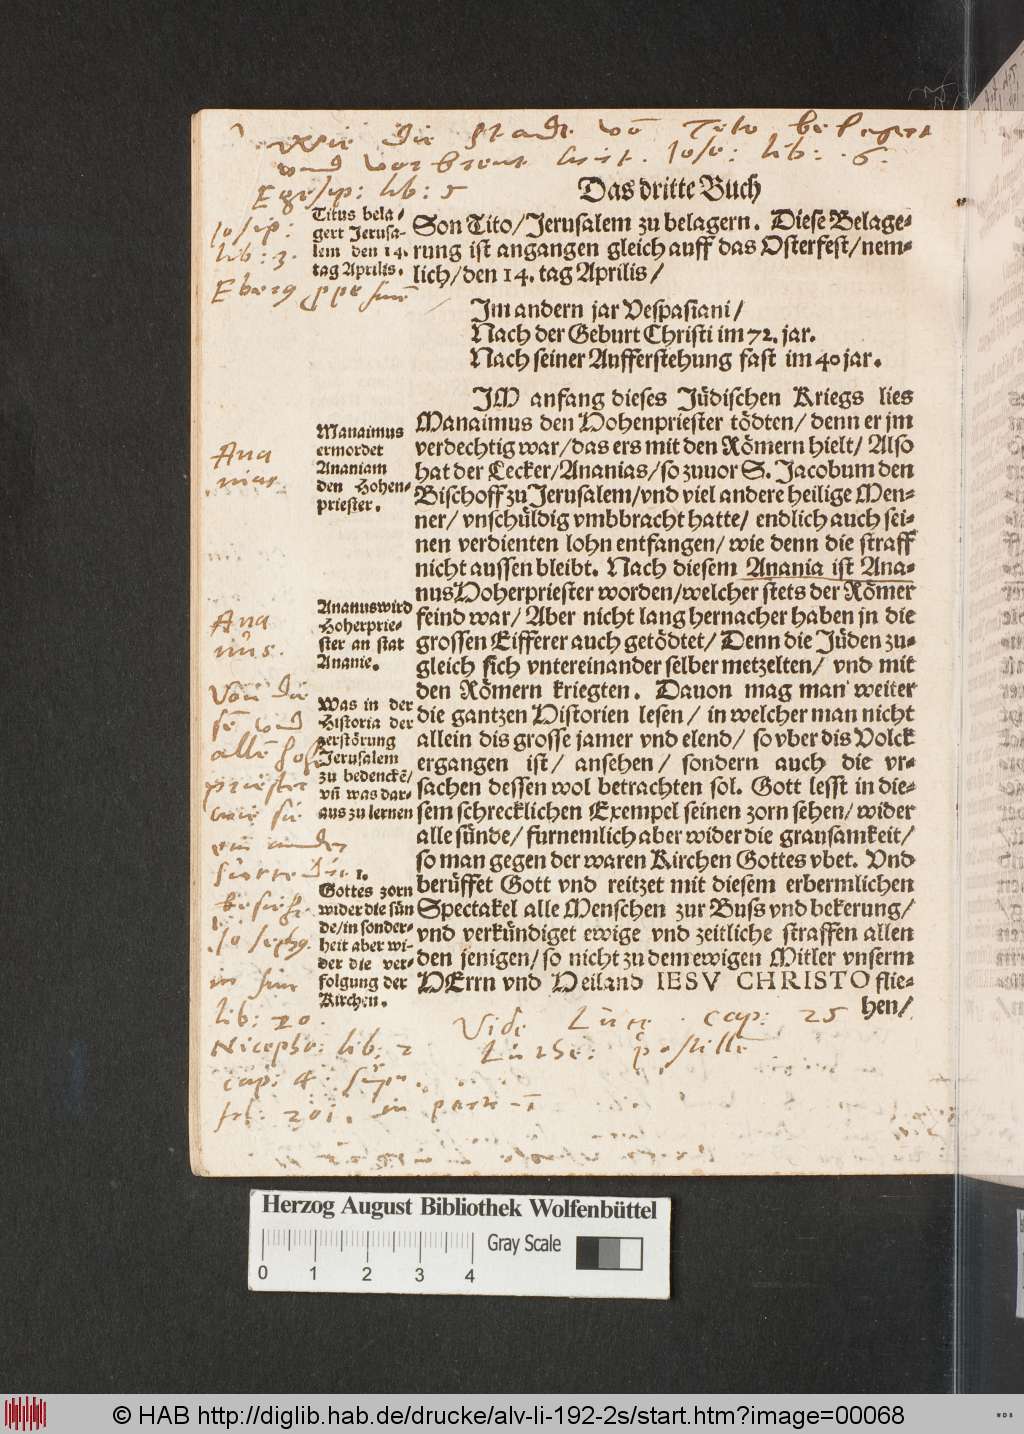 Wie die Stadt vō Tito belegert
vnnd vorbrent hirt. Jose: lib: .6.
Egesip: lib: 5
Das dritte Buch
Josip:
lib: 3.
Titus bela/
gert Jerusa-
lem den 14.
tag Aprilis.
Son Tito/Jerusalem zu belagern. Diese Belage-
rung ist angangen gleich auff das Osterfest/nem-
lich/den 14. tag Aprilis/
Im andern jar Vespasiani/
Nach der Geburt Christi im 72. jar.
Nach seiner Aufferstehung fast im 40 jar.
IM anfang dieses Jüdischen Kriegs lies
Manaimus den Hohenpriester tödten/denn er jm
verdechtig war/das ers mit den Römern hielt/Also
hat der Lecker/Ananias/so zuuor S. Jacobum den
Bischoff zu Jerusalem/vnd viel andere heilige Men-
ner/vnschüldig vmbbracht hatte/endlich auch sei-
nen verdienten lohn entfangen/wie denn die straff
nicht aussen bleibt. Nach diesem Anania ist Ana-
nus Hoherpriester worden/welcher stets der Römer
feind war/Aber nicht lang hernacher haben jn die
grossen Eifferer auch getödtet/Denn die Jüden zu-
gleich sich vntereinander selber metzelten/vnd mit
den Römern kriegten. Dauon mag man weiter
die gantzen Historien lesen/in welcher man nicht
allein dis grosse jamer vnd elend/so vber dis Volck
ergangen ist/ansehen/sondern auch die vr-
sachen dessen wol betrachten sol. Gott lesst in die-
sem schrecklichen Exempel seinen zorn sehen/wider
alle sünde/fürnemlich aber wider die grausamkeit/
so man gegen der waren Kirchen Gottes vbet. Vnd
berüffet Gott vnd reitzet mit diesem erbermlichen
Spectakel alle Menschen zur Buss vnd bekerung/
vnd verkündiget ewige vnd zeitliche straffen allen
den jenigen/so nicht zu dem ewigen Mitler vnserm
HErrn vnd Heiland IESV CHRISTO flie-
hen/
Ana
nias
Manaimus
ermordet
Ananiam
den Hohen-
priester.
Ana
nus.
Ananus wird
Hoherprie-
ster an stat
Ananie.
Von die
sē vnd
allē hohē
priester
wie sie
ein ander
Was in der
Historia der
zerstörung
Jerusalem
zu bedenckē/
vñ was dar-
aus zu lernen
besiehe
Josephg.
in sine
lib: 20.
Nicepho: lib: 2
cap: 4
fol: 201. in
1.
Gottes zorn
wider die sün
de/in sonder-
heit aber wi-
der die ver-
folgung der
Kirchen.
Vide Luce. cap: 25
Luthe: postille
Herzog August Bibliothek Wolfenbüttel
Gray Scale
0 1 2 3 4
© HAB http://diglib.hab.de/drucke/alv-li-192-2s/start.htm?image=00068